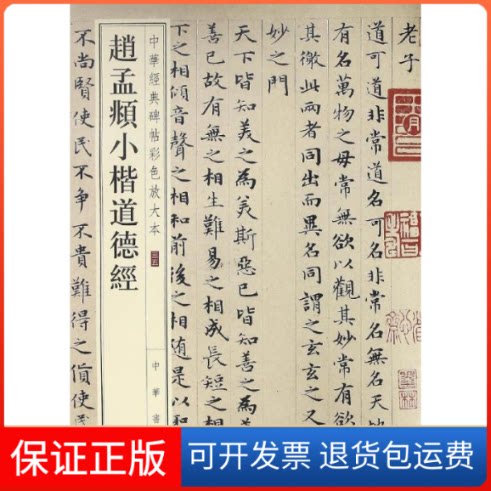 老子
道可道非常道名可名非常名無名天地
有名萬物之母常無欲以觀其妙常有欲
其徼此兩者同出而異名同謂之玄玄之又
妙之門
天下皆知美之為美斯惡已皆知善之為
善已故有無之相生難易之相成長短之相
下之相傾音聲之相和前後之相随是以聖
中華經典碑帖彩色放大本
趙孟頫小楷道德經
中華書
不尚賢使民不爭不貴難得之貨使民
保证正版
可开发票
退货无忧